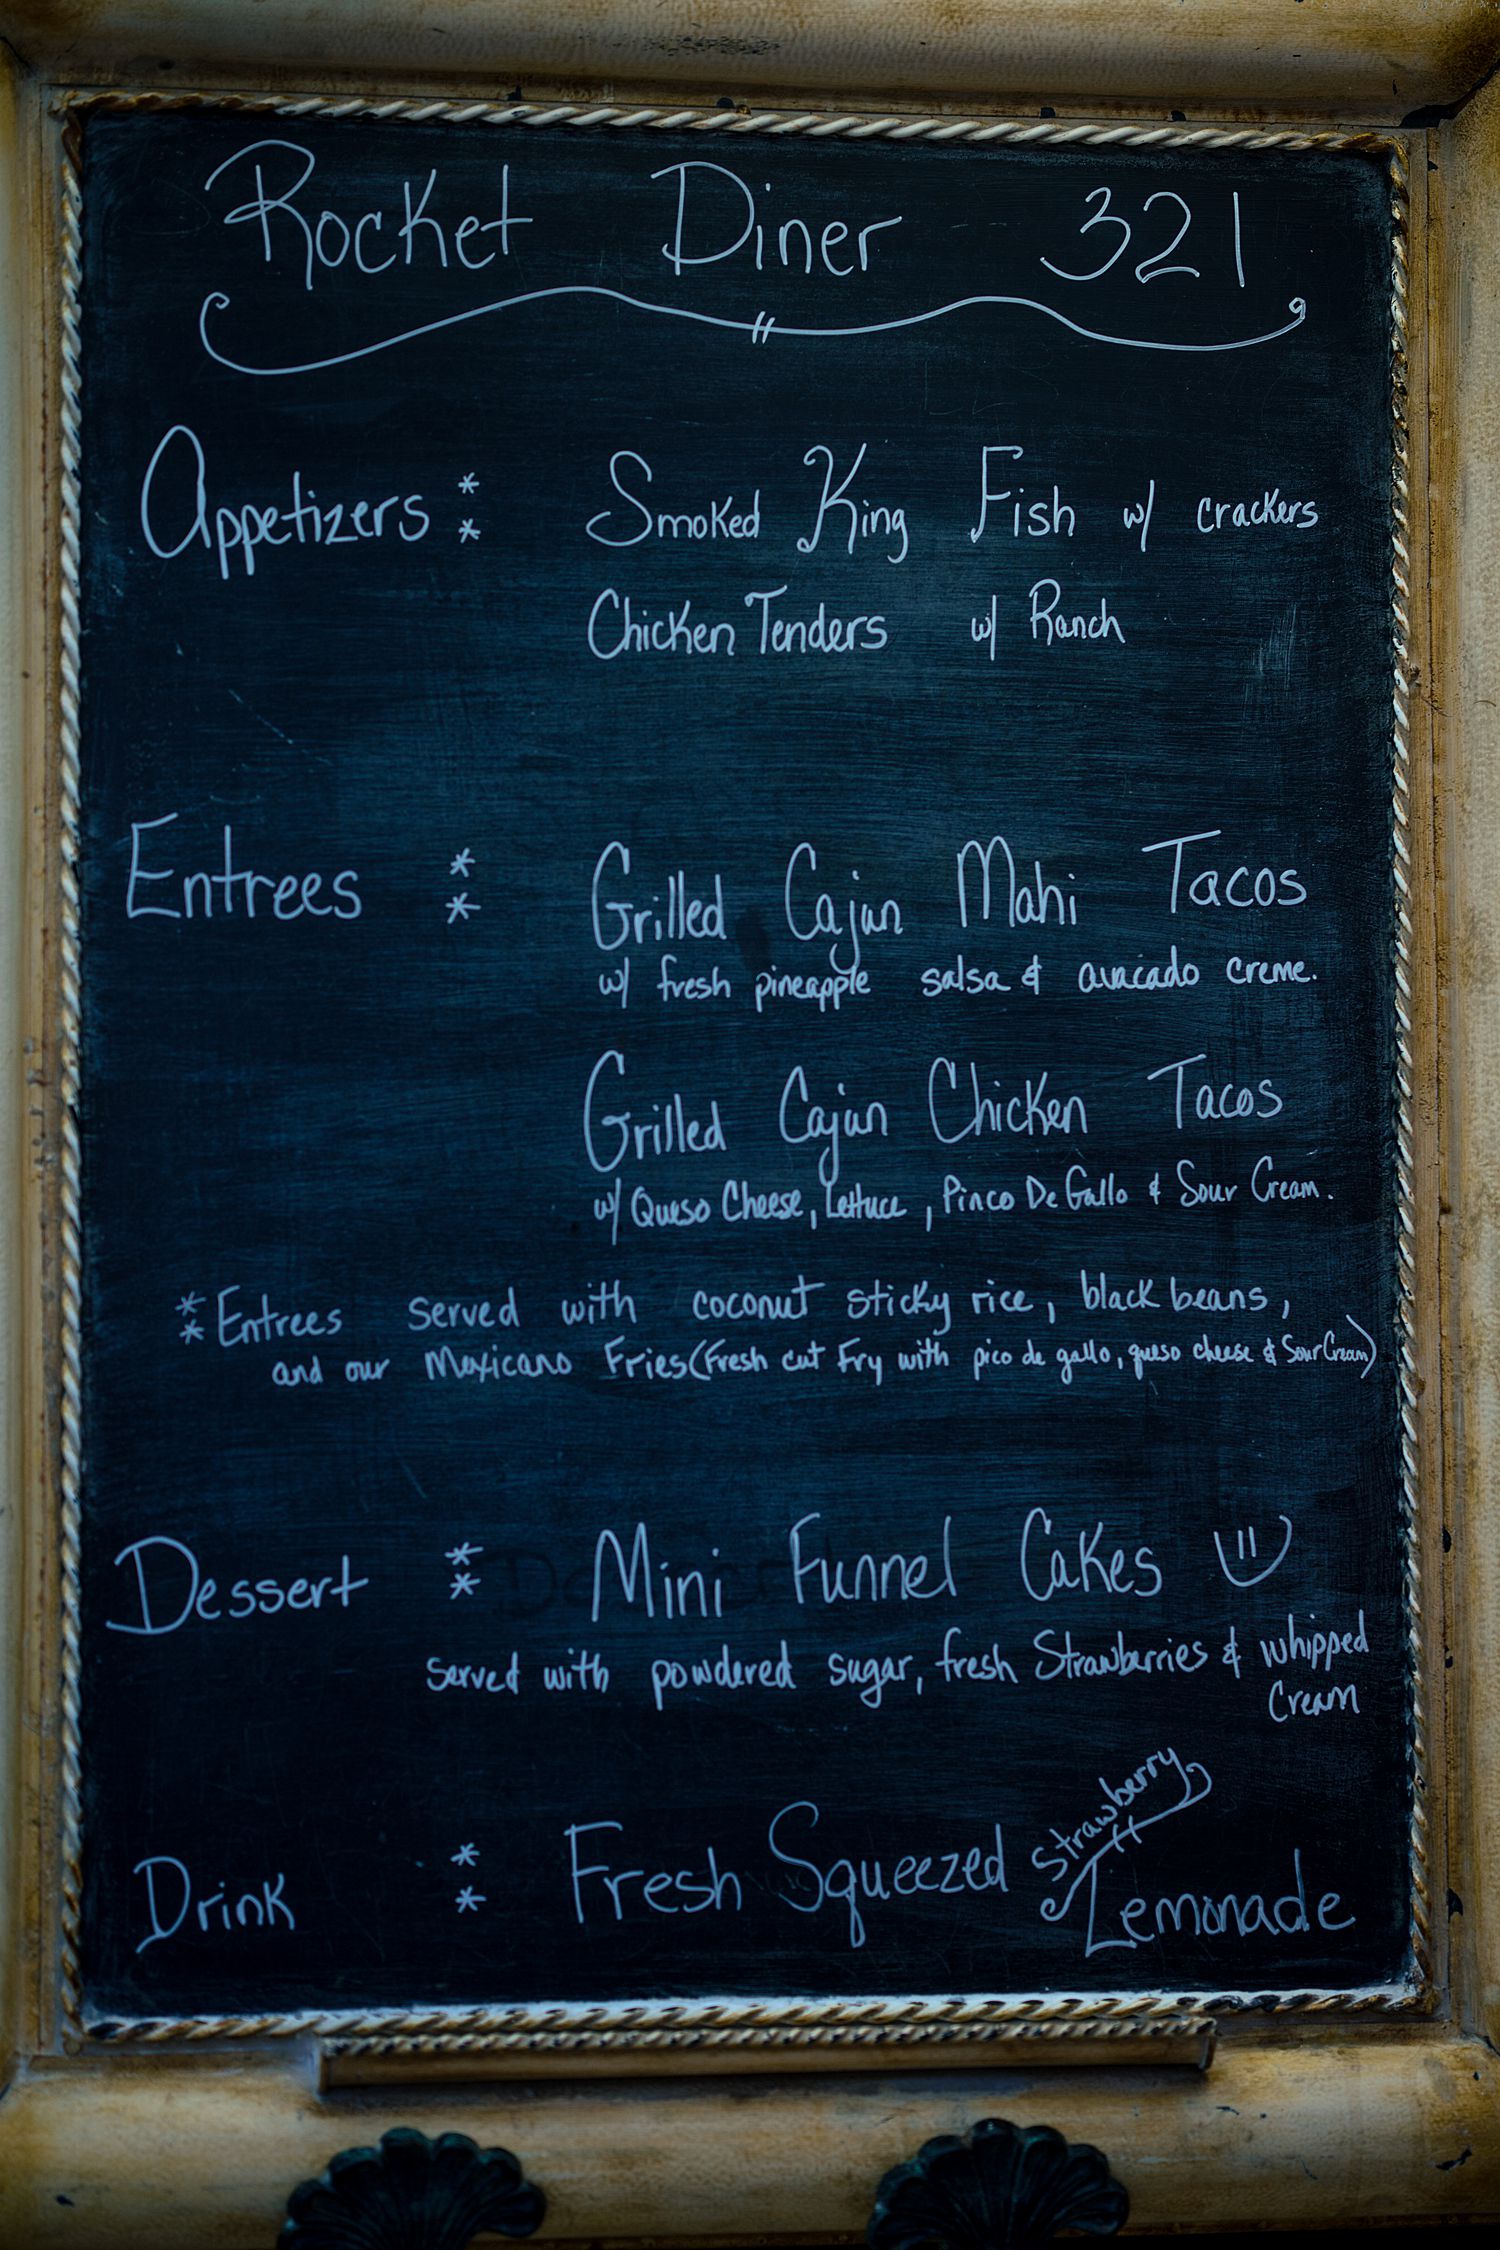 Rocket Diner 321
Appetizers : Smoked King Fish w/ crackers
Chicken Tenders w/ Ranch
Entrees : Grilled Cajun Mahi Tacos
w/ fresh pineapple salsa & avacado creme.
Grilled Cajun Chicken Tacos
w/ Queso Cheese, Lettuce, Pinco De Gallo & Sour Cream.
** Entrees served with coconut sticky rice, black beans,
and our Mexicano Fries (Fresh cut Fry with pico de gallo, queso cheese & Sour Cream)
Dessert : Mini Funnel Cakes
served with powdered sugar, fresh Strawberries & whipped
Cream
Strawberry
Drink : Fresh Squeezed Lemonade